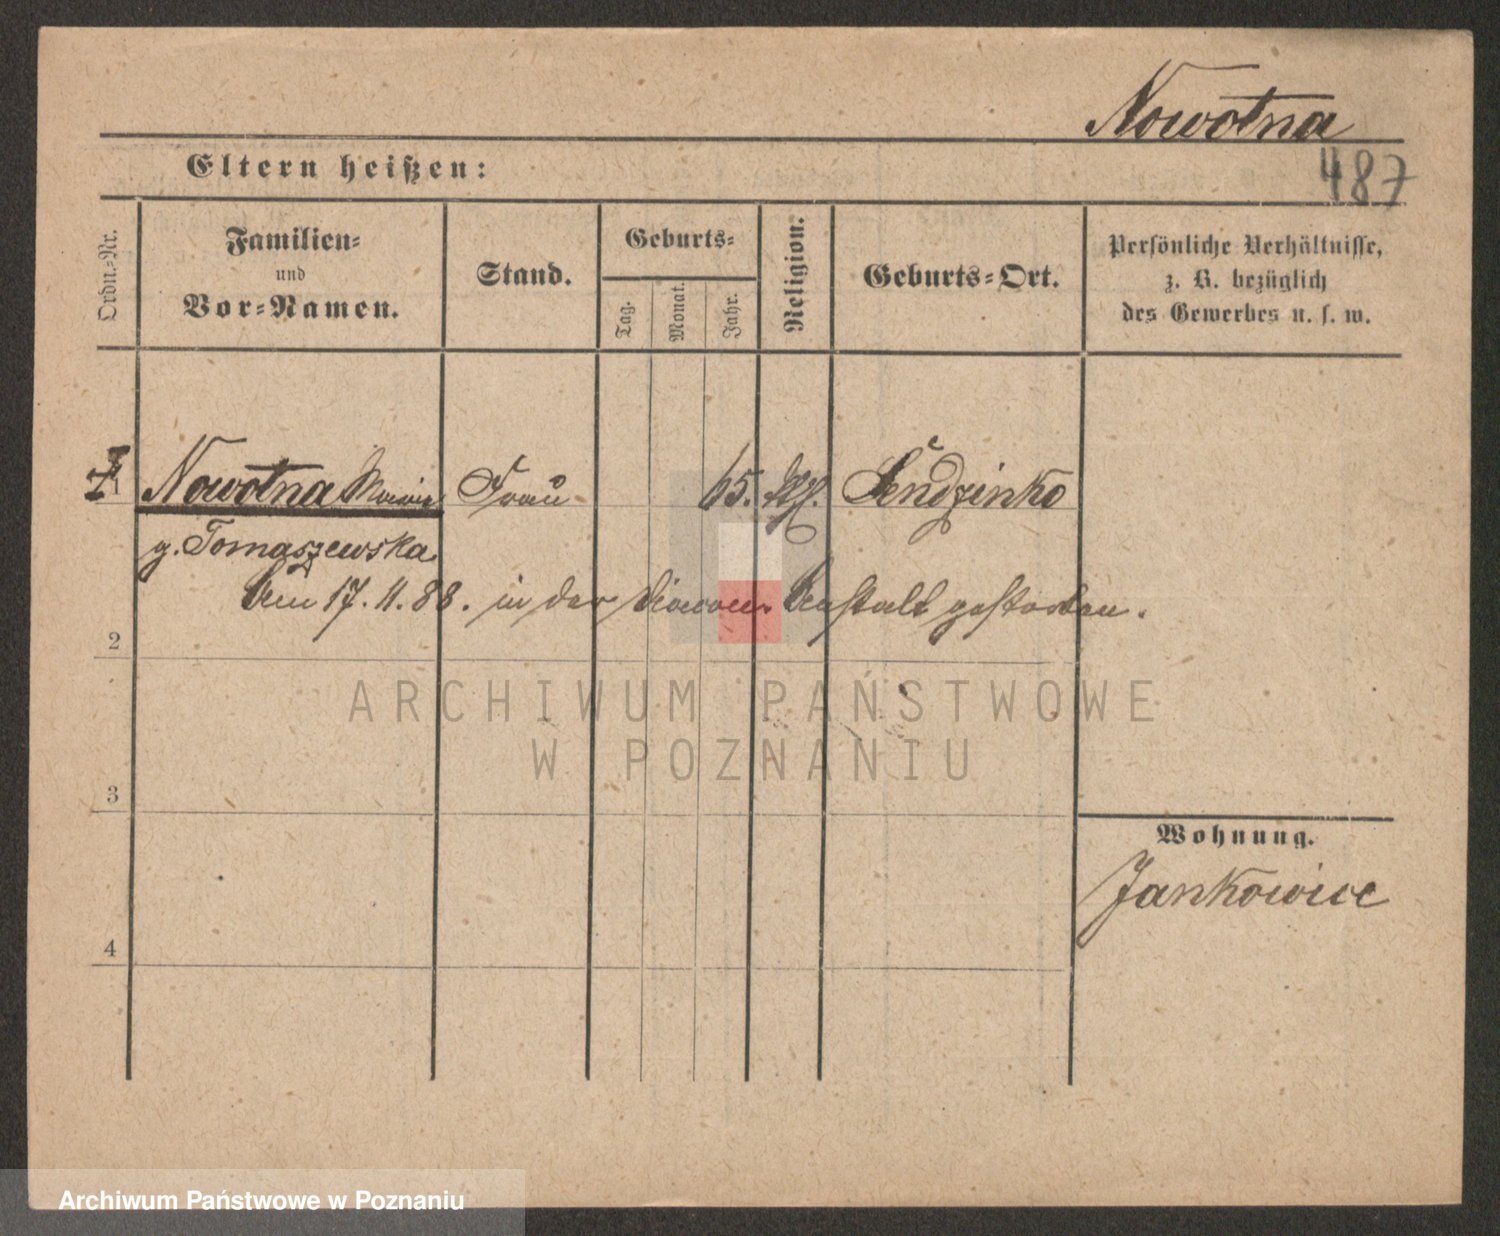 Nowotna
487
Eltern heißen:
Ordn.-Nr.
Familien-
und
Vor-Namen.
Stand.
Geburts-
Tag.
Monat.
Jahr.
Religion.
Geburts-Ort.
Persönliche Verhältnisse,
z. B. bezüglich
des Gewerbes u. s. w.
1 Nowotna Maria Frau 65. Sendzinko
g. Tomaszewska
Am 17. 4. 88. in der Diacon. Anstalt gestorben.
2
ARCHIWUM PAŃSTWOWE
W POZNANIU
3
Wohnung.
Jankowice
4
Archiwum Państwowe w Poznaniu